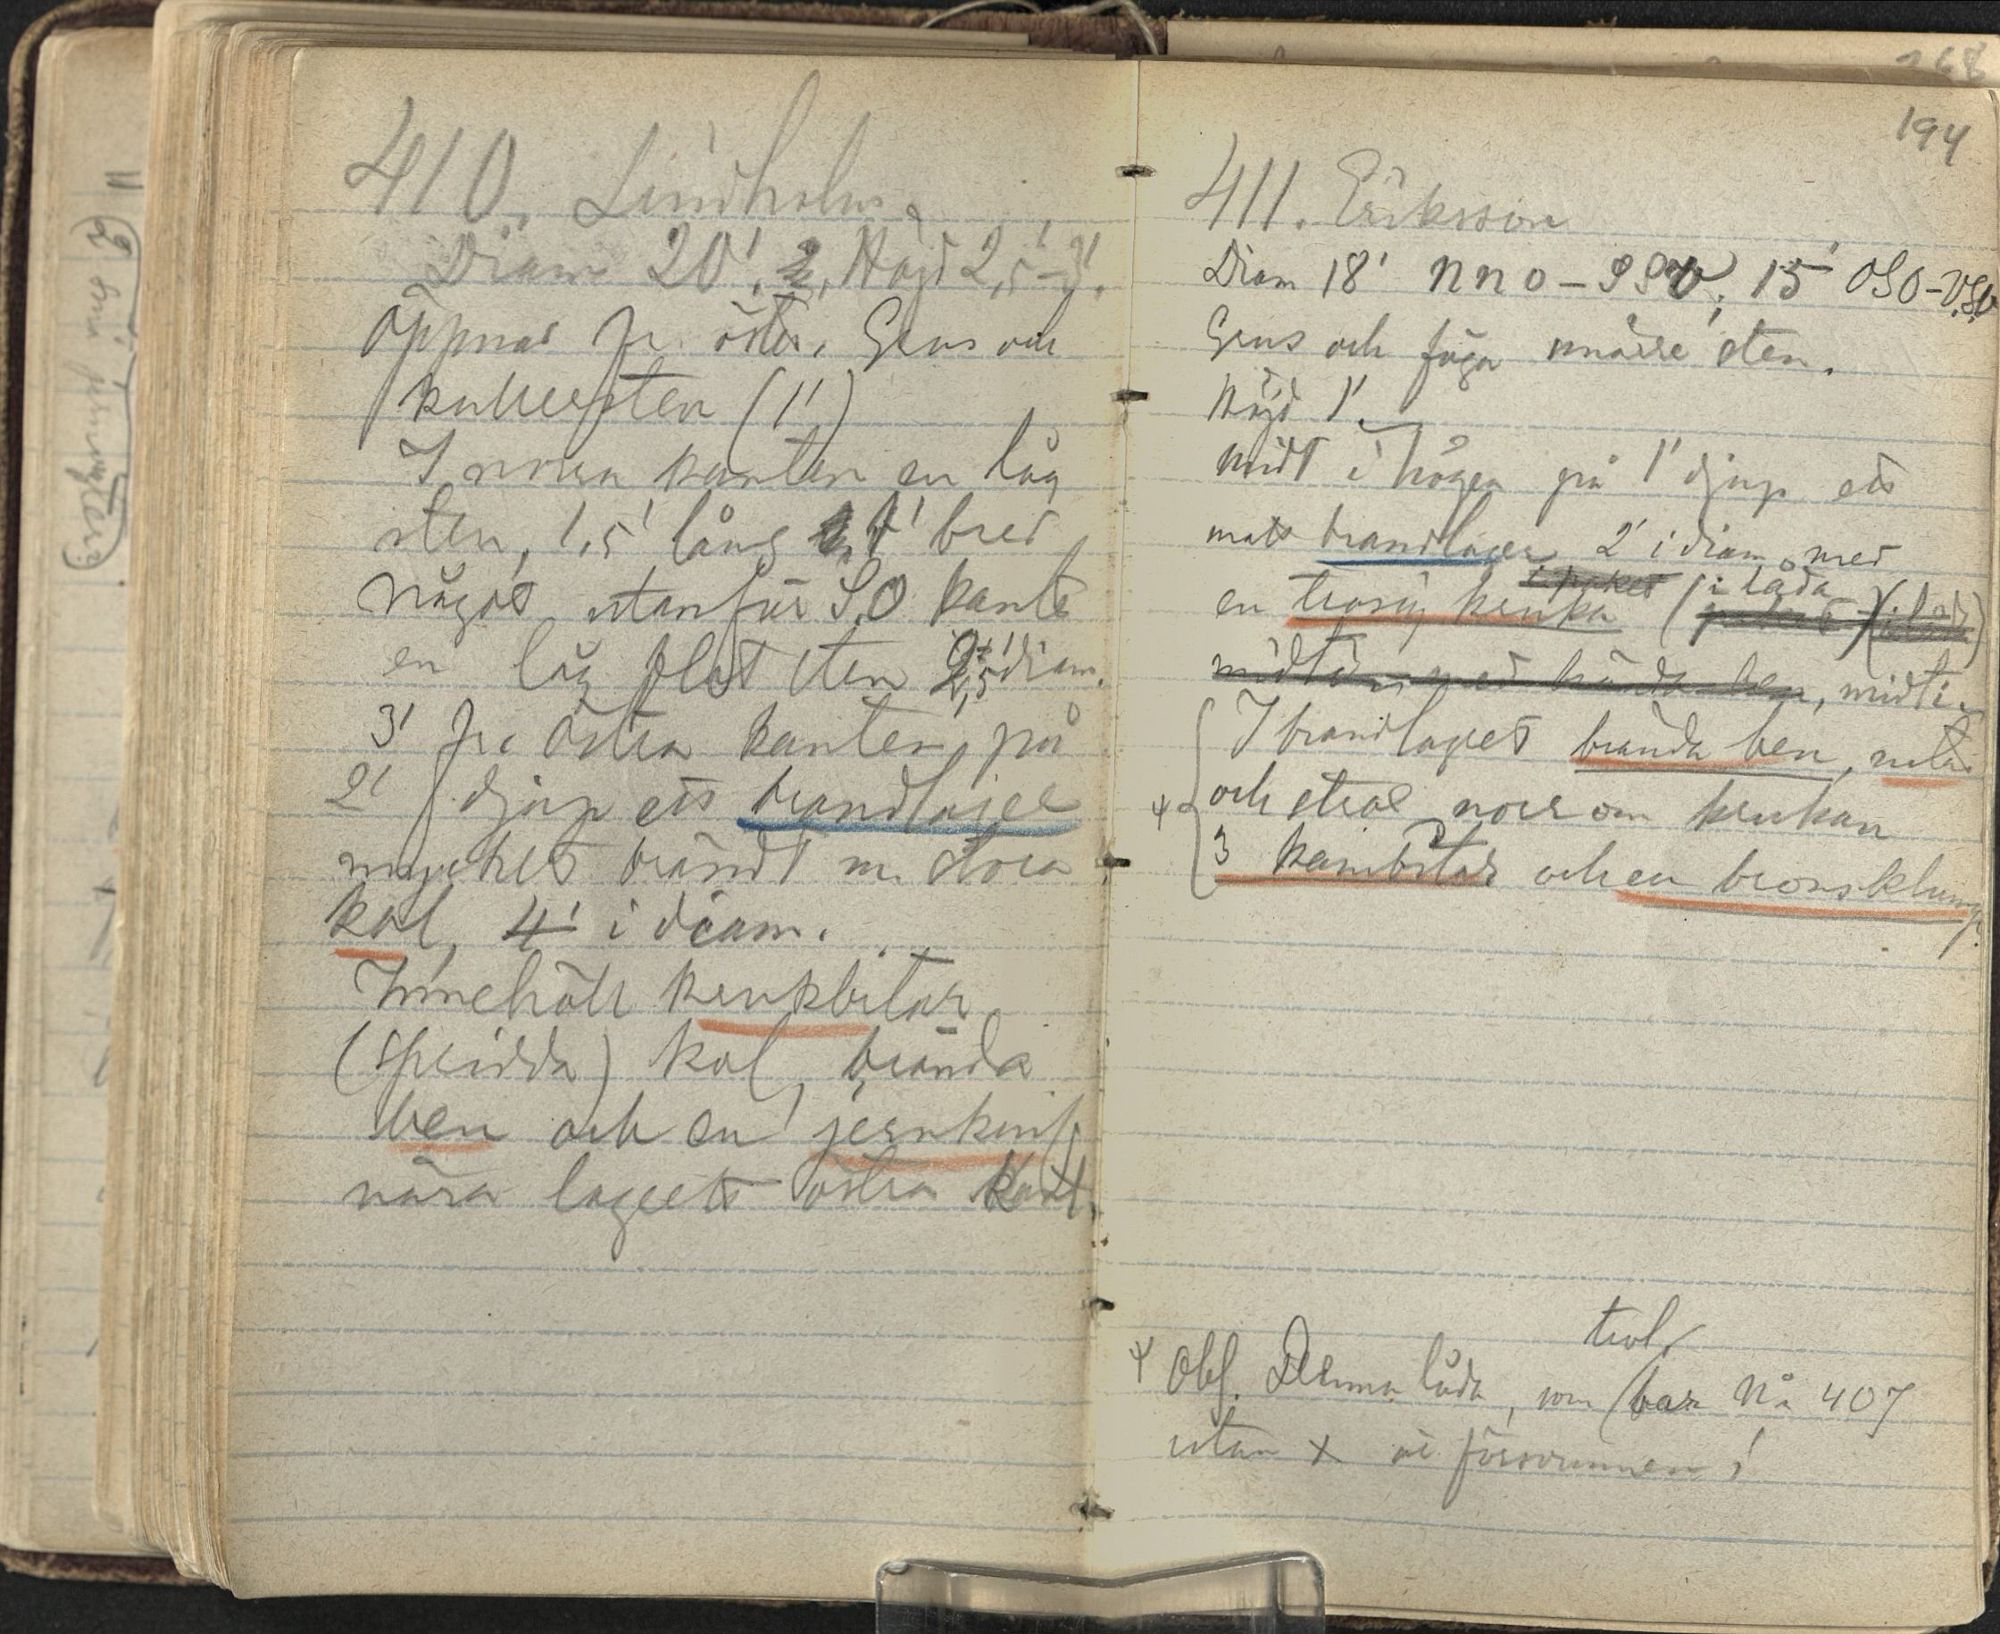 410. Lindholm.
Diam 20'. Höjd 2,5'-3'.
Öppnad fr. öster. Grus och
kullersten (1')
I norra kanten en låg
sten, 1,5' lång 1' bred
något utanför S.O kante
en låg flat sten 2,5' diam.
3' fr. östra kanten, på
2' djup ett brandlager
mycket brändt m. stora
kol, 4' i diam.
Innehöll krukbitar
(spridda) kol, brända
ben och en jernknif
nära lagrets östra kant.
194
411. Eriksson
Diam 18' NNO-SSV, 15' OSO-VSV
Grus och föga större sten.
Höjd 1'.
Midt i högen på 1' djup ett
brandlager 2' i diam. med
en trasig kruka (i låda
midti.
I brandlagret brända ben,
och strax norr om krukan
3 kambitar och en bronsklump.
trol.
Obs. Denna låda, som bar No 407
utan x är försvunnen!
168